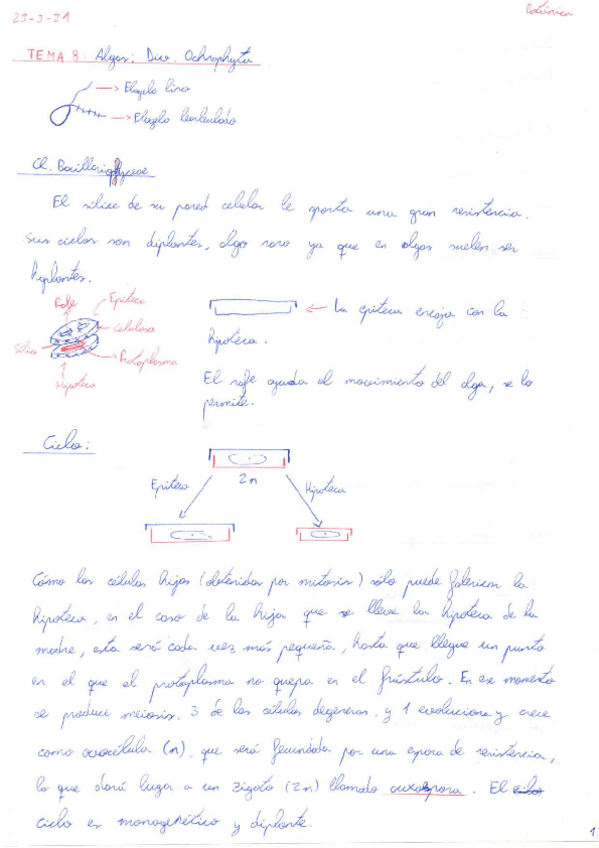 23-3-21
Botánica
TEMA 8: Algas: Div. Ochrophyta
Flagelo liso
Flagelo barbulado
Cl. Bacillariophyceae
El sílice de su pared celular le aporta una gran resistencia.
Sus ciclos son diplontes, algo raro ya que en algas suelen ser
haplontes.
Rafe
Epiteca
Celulosa
Sílice
Protoplasma
Hipoteca
La epiteca encaja con la
hipoteca.
El rafe ayuda al movimiento del alga, se lo
permite.
Ciclo:
Epiteca
2n
Hipoteca
Cómo las células hijas (obtenidas por mitosis) sólo puede fabricar la
hipoteca, en el caso de la hija que se lleve la hipoteca de la
madre, esta será cada vez más pequeña, hasta que llegue un punto
en el que el protoplasma no quepa en el frústulo. En ese momento
se produce meiosis. 3 de las células degeneran y 1 evoluciona y crece
como ovocélula (n), que será fecundada por una espora de resistencia,
lo que dará lugar a un zigoto (2n) llamado auxospora. El ciclo
ciclo es monogenético y diplonte.
1